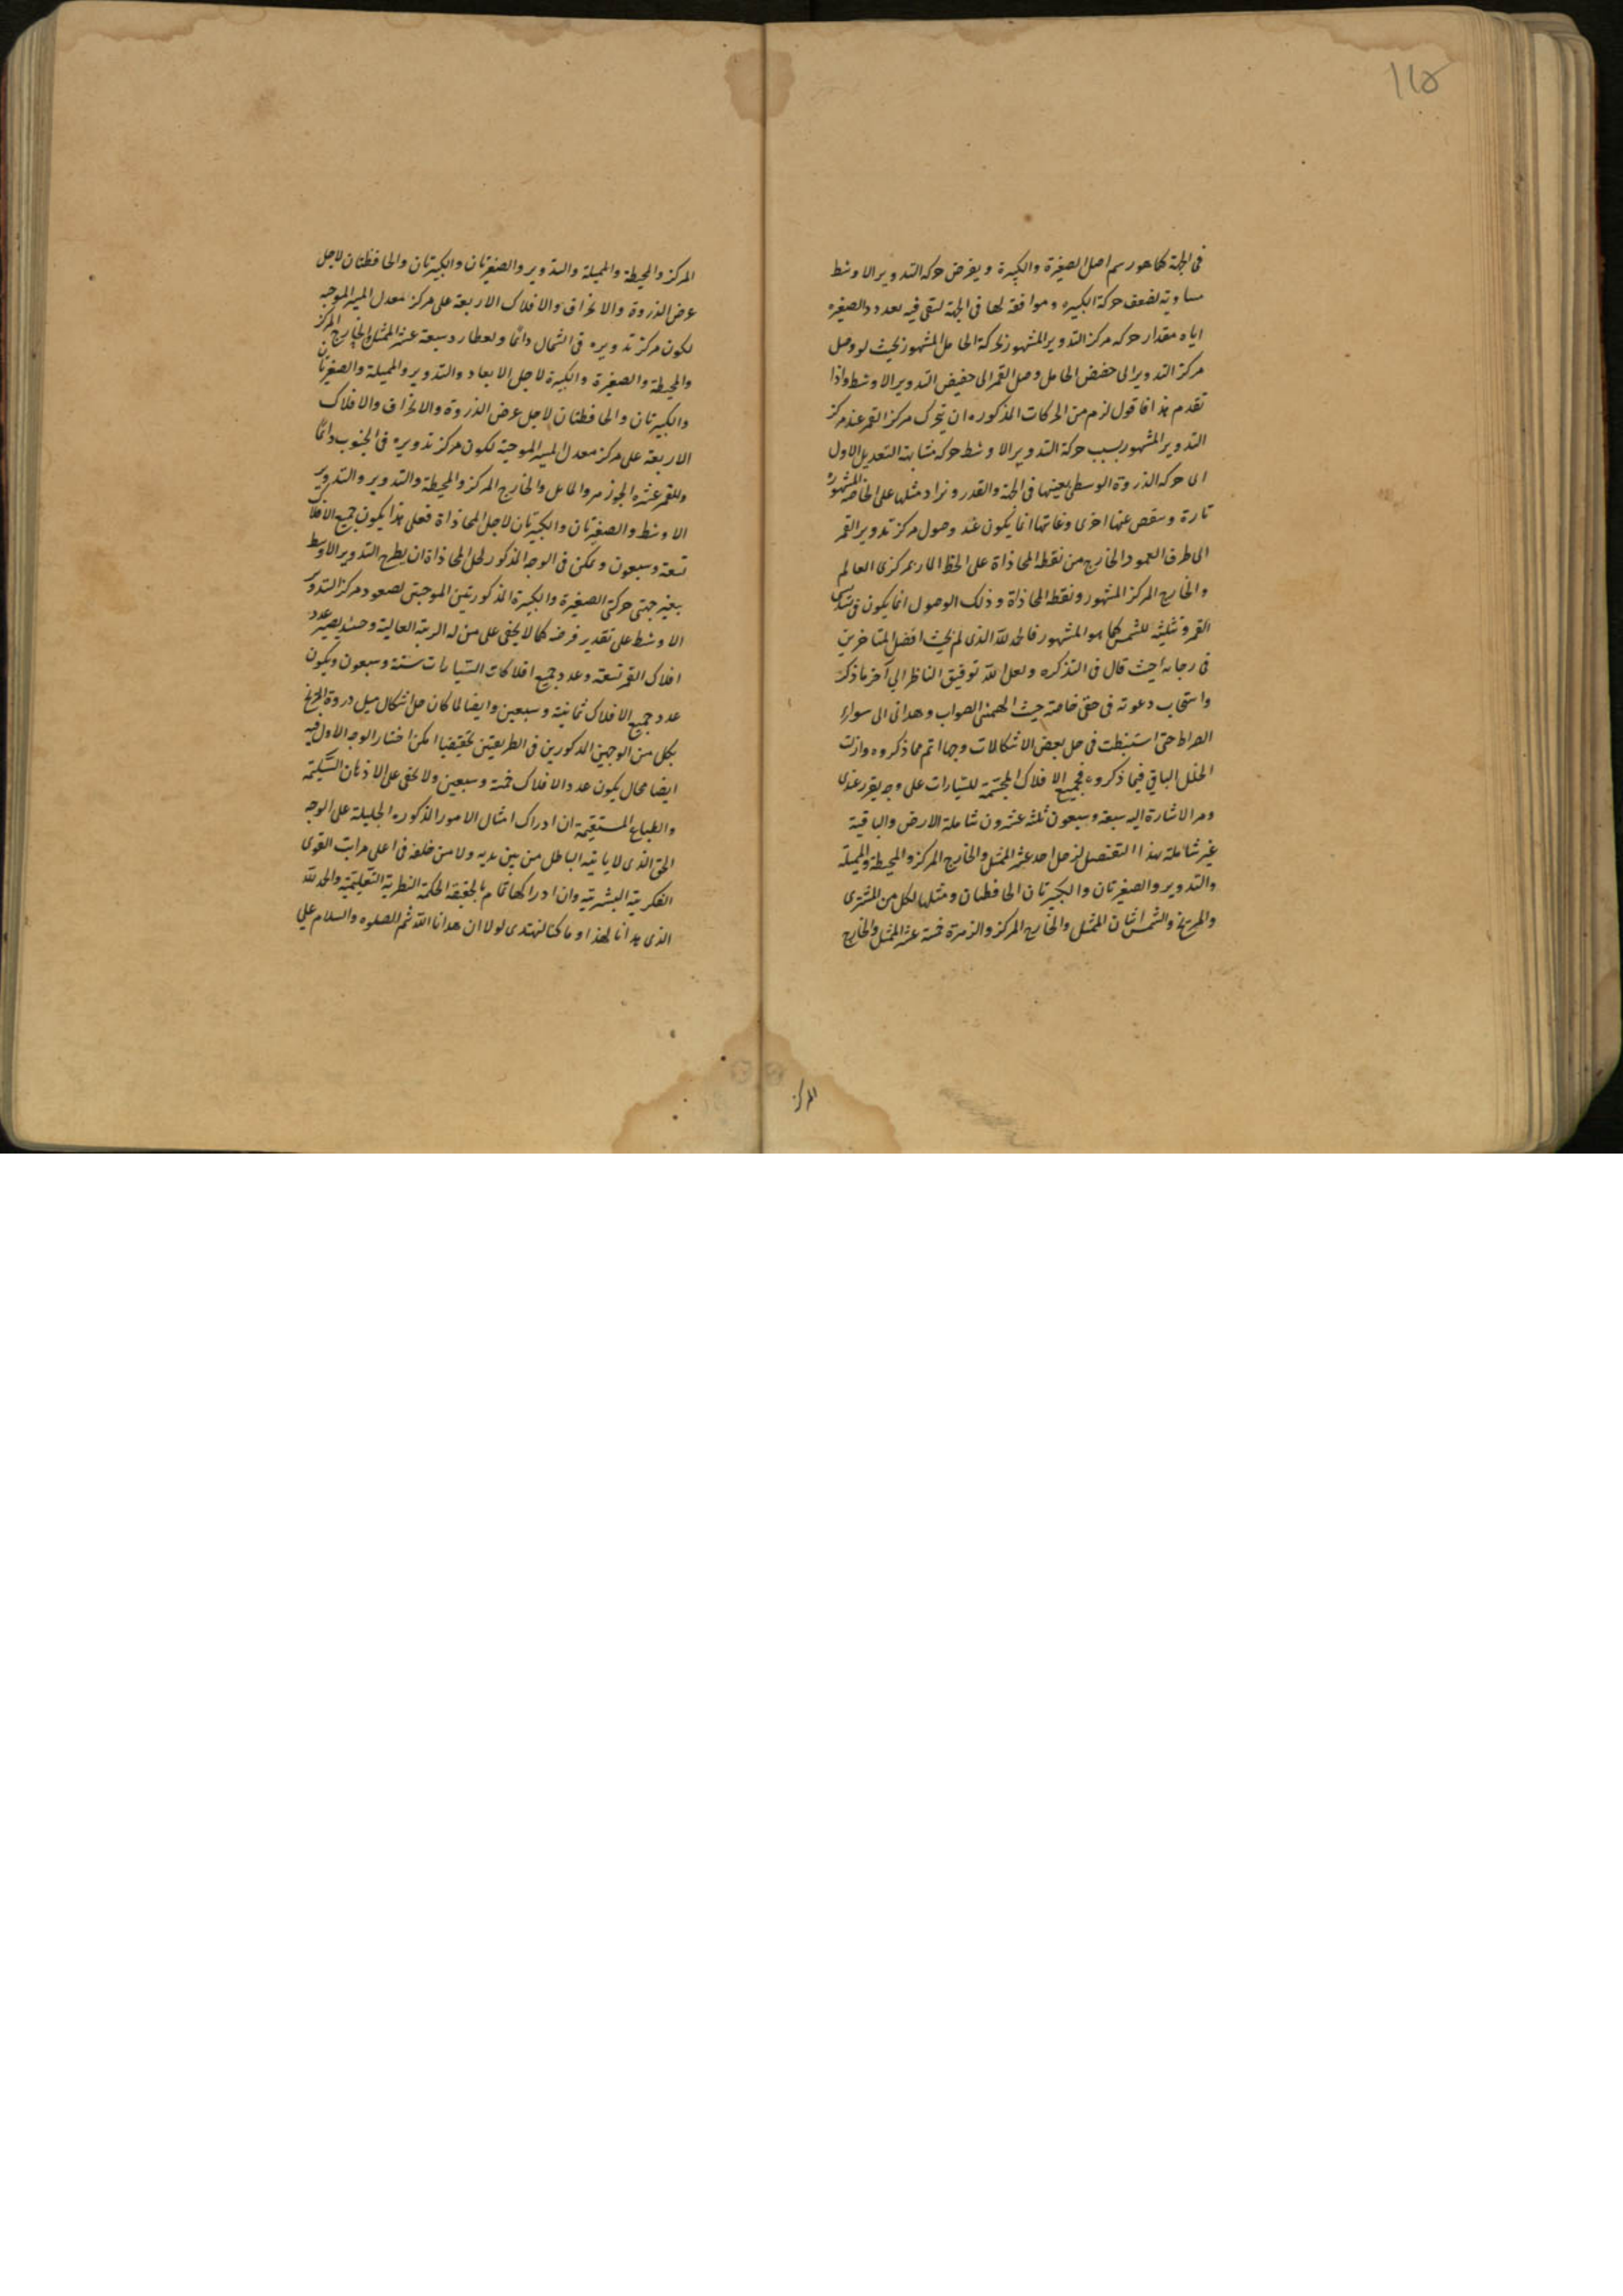 ١١٥
فى الجهة كما هو رسم اصل الصغيرة والكبيرة ويفرض حركة التدوير الاوسط
مساوية لضعف حركة الكبيرة وموافقة لها فى الجهة لتقى فيه بعدد الصغيره
اياه مقدار حركه مركز التدوير المشهور بحركة الحامل المشهور بحيث لو وصل
مركز التدوير الى حضيض الحامل وصل القمر الى حضيض التدوير الاوسط واذا
تقدم هذا فاقول لزم من الحركات المذكوره ان يتحرك مركز القمر عند مركز
التدوير المشهور بسبب حركة التدوير الاوسط حركه مشابهة التعديل الاول
اى حركه الذروة الوسطى بعينها فى الجهة والقدر ونزاد مثلها على الخاصة المشهورة
تارة وينقص عنها اخرى وغايتها انما يكون عند وصول مركز تدوير القمر
الى طرف العمود الخارج من نقطة المحاذاة على الخط المار بمركزى العالم
والخارج المركز المشهور ونقطة المحاذاة وذلك الوصول انما يكون فى تسديسى
القمر وتثليثه للشمس كما هو المشهور فالحمد لله الذى لم يخيب افضل المتاخرين
فى رجائه حيث قال فى التذكره ولعل الله توفيق الناظر الى آخر ما ذكر
واستجاب دعوته فى حقى خاصة حيث الهمنى الصواب وهدانى الى سواء
الصراط حتى استنبطت فى حل بعض الاشكالات وجها اتم مما ذكروه وازلت
الخلل الباقى فيما ذكروه فجميع الافلاك المجسمة للسيارات على وجه تقرر عندى
ومر الاشارة اليه سبعة وسبعون ثلثة عشرون شاملة الارض والباقية
غير شاملة بهذا التفصيل لزحل احد عشر الممثل والخارج المركز والمحيطة والمميلة
والتدوير والصغيرتان والكبيرتان الحافظتان ومثلها لكل من المشترى
والمريخ والشمس اثنان الممثل والخارج المركز والزهرة خمسة عشر الممثل والخارج
المركز
المركز والمحيطة والمميلة والتدوير والصغيرتان والكبيرتان والحافظتان لاجل
عرض الذروة والانحراف والافلاك الاربعة على مركز معدل المسير الموجبه
لكون مركز تدويره فى الشمال دائما ولعطارد سبعة عشر الممثل والخارج المركز
والمحيطة والصغيرة والكبيرة لاجل الابعاد والتدوير والمميلة والصغيرتان
والكبيرتان والحافظتان لاجل عرض الذروة والانحراف والافلاك
الاربعة على مركز معدل المسير الموجبة لكون مركز تدويره فى الجنوب دائما
وللقمر عشرة الجوزهر والمائل والخارج المركز والمحيطة والتدوير والتدوير
الاوسط والصغيرتان والكبيرتان لاجل المحاذاة فعلى هذا يكون جميع الافلاك
تسعة وسبعون ويمكن فى الوجه المذكور لحل المحاذاة ان يطرح التدوير الاوسط
بغير جهتى حركتى الصغيرة والكبيرة المذكورتين الموجبتى لصعود مركز التدوير
الاوسط على تقدير فرضه كما لا يخفى على من له الرتبة العالية وحينئذ يصير عدد
افلاك القمر تسعة وعدد جميع افلاكات السيارات ستة وسبعون ويكون
عدد جميع الافلاك ثمانية وسبعين وايضا لما كان حل اشكال ميل ذروة المريخ
بكل من الوجهين المذكورين فى الطريقتين تحقيقيا امكن اختيار الوجه الاول فيه
ايضا محال يكون عدد الافلاك خمسة وسبعين ولا يخفى على الاذهان السليمة
والطباع المستقيمة ان ادراك امثال الامور المذكوره الجليلة على الوجه
الحق الذى لا ياتيه الباطل من بين يديه ولا من خلفه فى اعلى مراتب القوى
الفكرية البشرية وان ادراكها قام بالحقيقة الحكمة النظرية التعليمية والحمد لله
الذى هدانا لهذا وما كنا لنهتدى لولا ان هدانا الله ثم الصلوه والسلام على